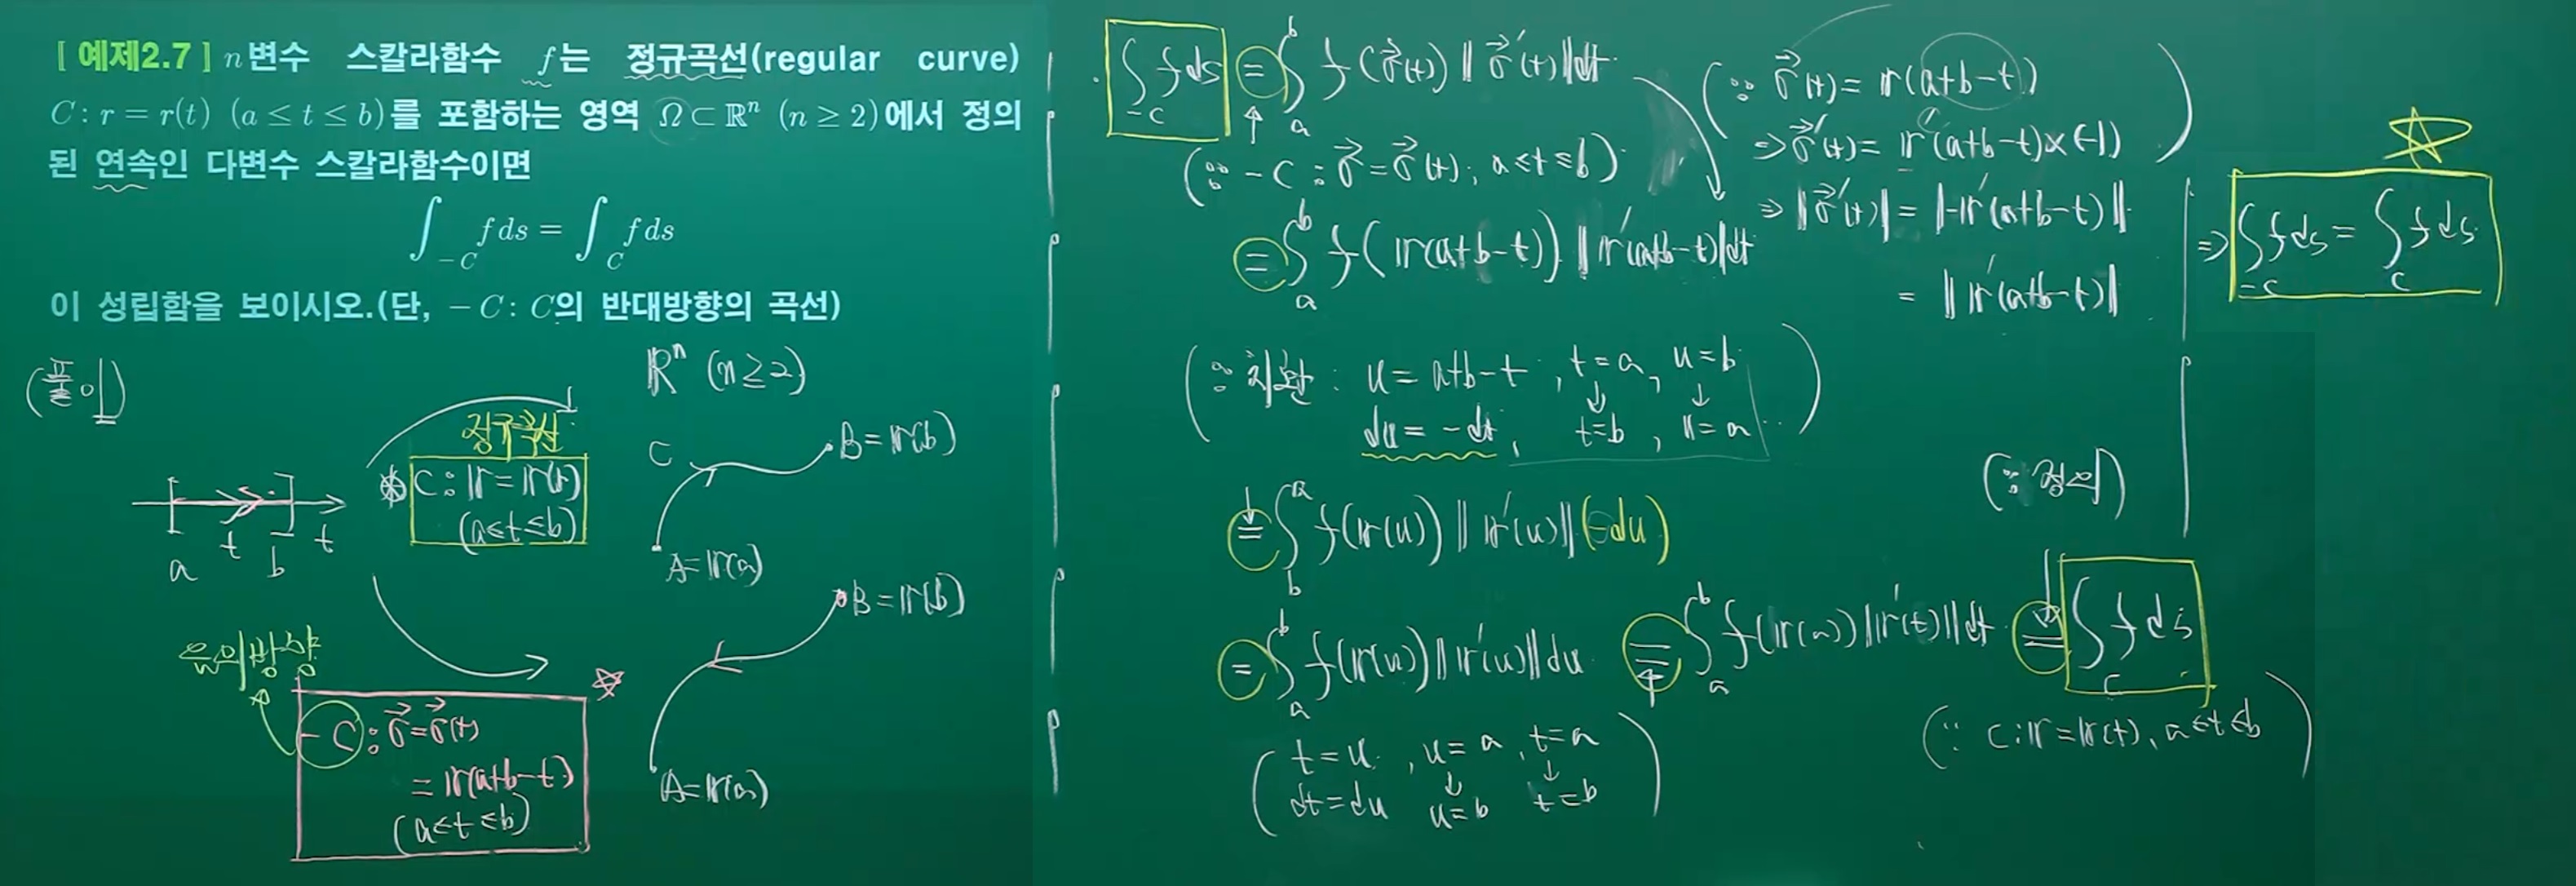 [ 예제2.7 ] n변수 스칼라함수 f는 정규곡선(regular curve)
C : r = r(t) (a ≤ t ≤ b)를 포함하는 영역 Ω ⊂ ℝⁿ (n ≥ 2)에서 정의
된 연속인 다변수 스칼라함수이면
∫_{-C} f ds = ∫_C f ds
이 성립함을 보이시오.(단, − C : C의 반대방향의 곡선)
(풀이)
ℝⁿ (n ≥ 2)
정규곡선
C : 𝕣 = 𝕣(t)
(a ≤ t ≤ b)
a t b t
C
B = 𝕣(b)
A = 𝕣(a)
음의방향
− C : σ⃗ = σ⃗(t)
= 𝕣(a+b−t)
(a ≤ t ≤ b)
B = 𝕣(b)
A = 𝕣(a)
∫_{-C} f ds = ∫_a^b f(σ⃗(t)) ‖σ⃗′(t)‖dt
(∵ − C : σ⃗ = σ⃗(t), a ≤ t ≤ b)
= ∫_a^b f(𝕣(a+b−t)) ‖𝕣′(a+b−t)‖dt
(∵ σ⃗(t) = 𝕣(a+b−t)
⇒ σ⃗′(t) = 𝕣′(a+b−t)×(−1)
⇒ ‖σ⃗′(t)‖ = ‖−𝕣′(a+b−t)‖
= ‖𝕣′(a+b−t)‖)
(∵ 치환 : u = a+b−t , t = a, u = b
du = −dt, t = b , u = a)
= ∫_b^a f(𝕣(u)) ‖𝕣′(u)‖(−du)
= ∫_a^b f(𝕣(u)) ‖𝕣′(u)‖du = ∫_a^b f(𝕣(t)) ‖𝕣′(t)‖dt = ∫_C f ds
(t = u , u = a , t = a
dt = du u = b t = b)
(∵ 정의)
(∵ C : 𝕣 = 𝕣(t), a ≤ t ≤ b)
⇒ ∫_{-C} f ds = ∫_C f ds